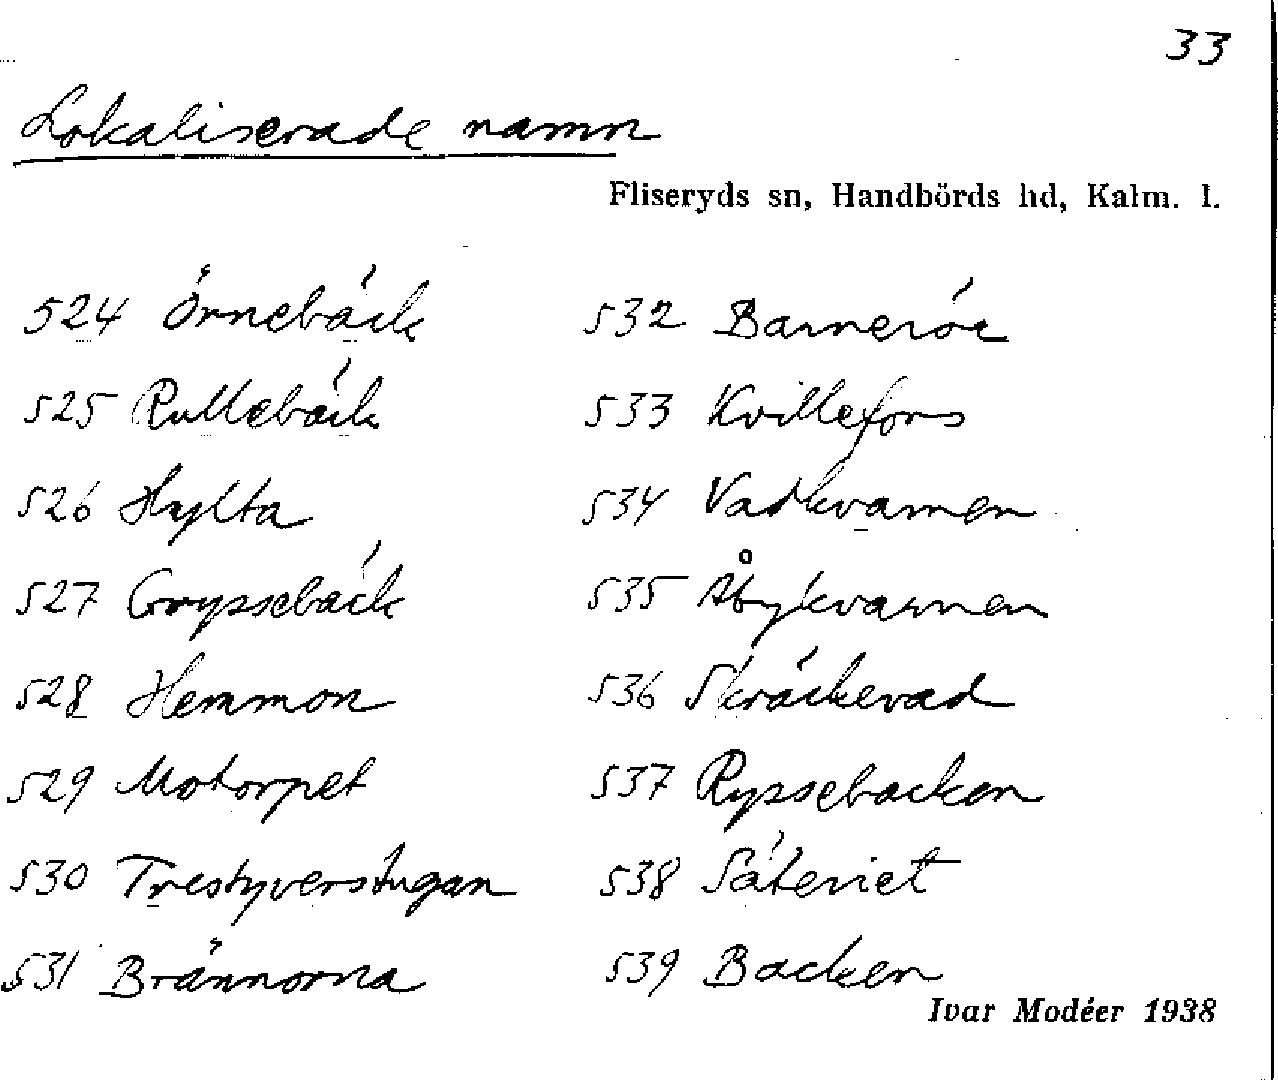 33
Lokaliserade namn
Fliseryds sn, Handbörds hd, Kalm. l.
524 Örnebäck
525 Rullebäck
526 Hylta
527 Gryssebäck
528 Hemmon
529 Motorpet
530 Trestyverstugan
531 Brännorna
532 Barnerör
533 Kvillefors
534 Vadkvarnen
535 Åbykvarnen
536 Skräckevad
537 Ryssebacken
538 Säteriet
539 Backen
Ivar Modéer 1938